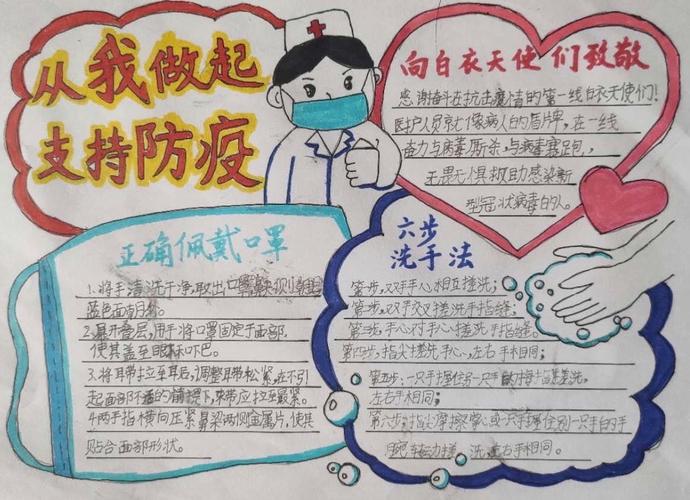 从我做起
支持防疫
向白衣天使们致敬
感谢奋斗在抗击疫情的第一线白衣天使们!
医护人员就像病人的盾牌,在一线
奋力与病毒厮杀,与病毒赛跑,
无畏无惧救助感染新
型冠状病毒的人。
正确佩戴口罩
1、将手清洗干净,取出口罩
蓝色面朝外。
2.展开叠层,用手将口罩固定于面部,
使其盖至眼下巴。
3.将耳带拉至耳后,调整耳带松紧,在不引
起面部不适的前提下,束带应拉至最紧。
4.两手指横向压紧鼻梁两侧金属片,使其
贴合面部形状。
六步
洗手法
第一步,双手手心相互搓洗;
第二步,双手交叉搓洗手指缝;
第三步,手心对手心搓洗手指缝;
第四步,指尖搓洗手心,左右手相同;
第五步:一只手握住另一只手搓洗,
左右手相同;
第六步:指尖摩擦掌心或一只手握住另一只手的手
腕转动搓洗左右手相同。